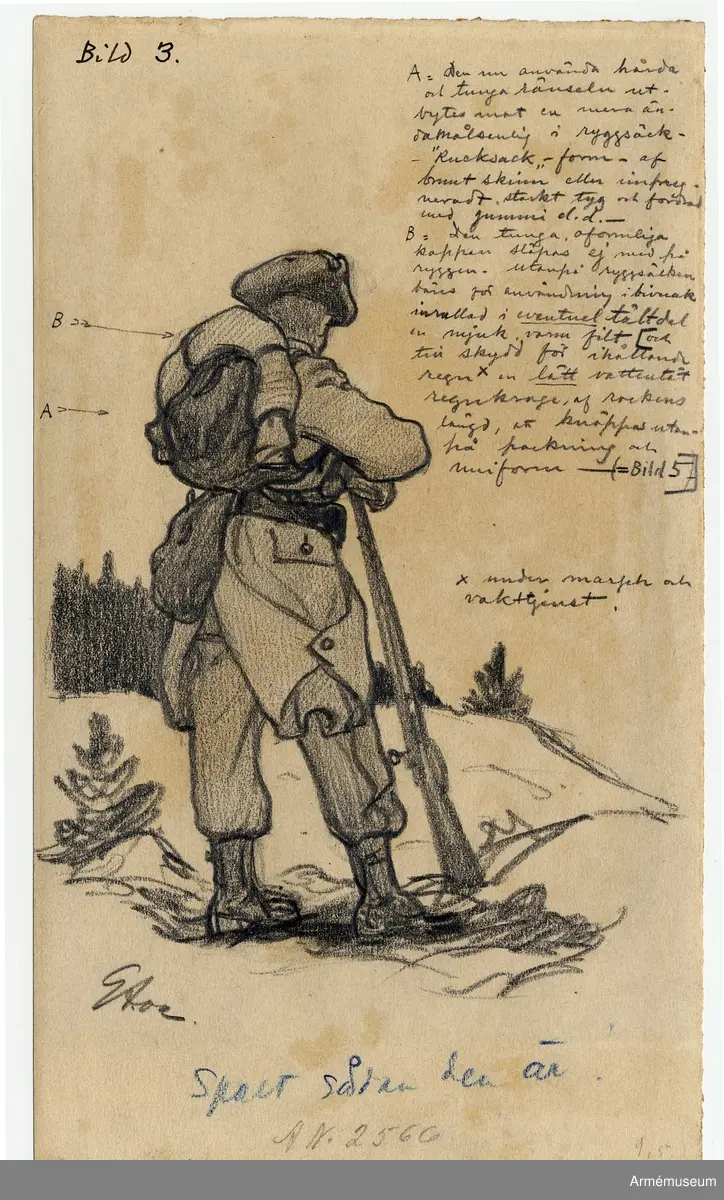 Bild 3.
A = Den nu använda hårda
och tunga ränseln ut-
bytes mot en mera än-
damålsenlig i ryggsäck-
- "Rucksack"- form - af
brunt skinn eller impreg-
neradt, starkt tyg och fodrad
med gummi d.d. -
B = Den tunga, oformliga
kappan släpas ej med på
ryggen. Utanpå ryggsäcken
bäres för användning i bivuak
inrullad i eventuel tältdel
en mjuk, varm filt [och
till skydd för ihållande
regn x en lätt vattentät
regnkrage, af rockens
längd, att knäppas utan-
på packning och
uniform — (=Bild 5)]
B
A
x under marsch och
vakttjenst.
Spalt sådan den är.
AN. 2566
9,5
Armémuseum